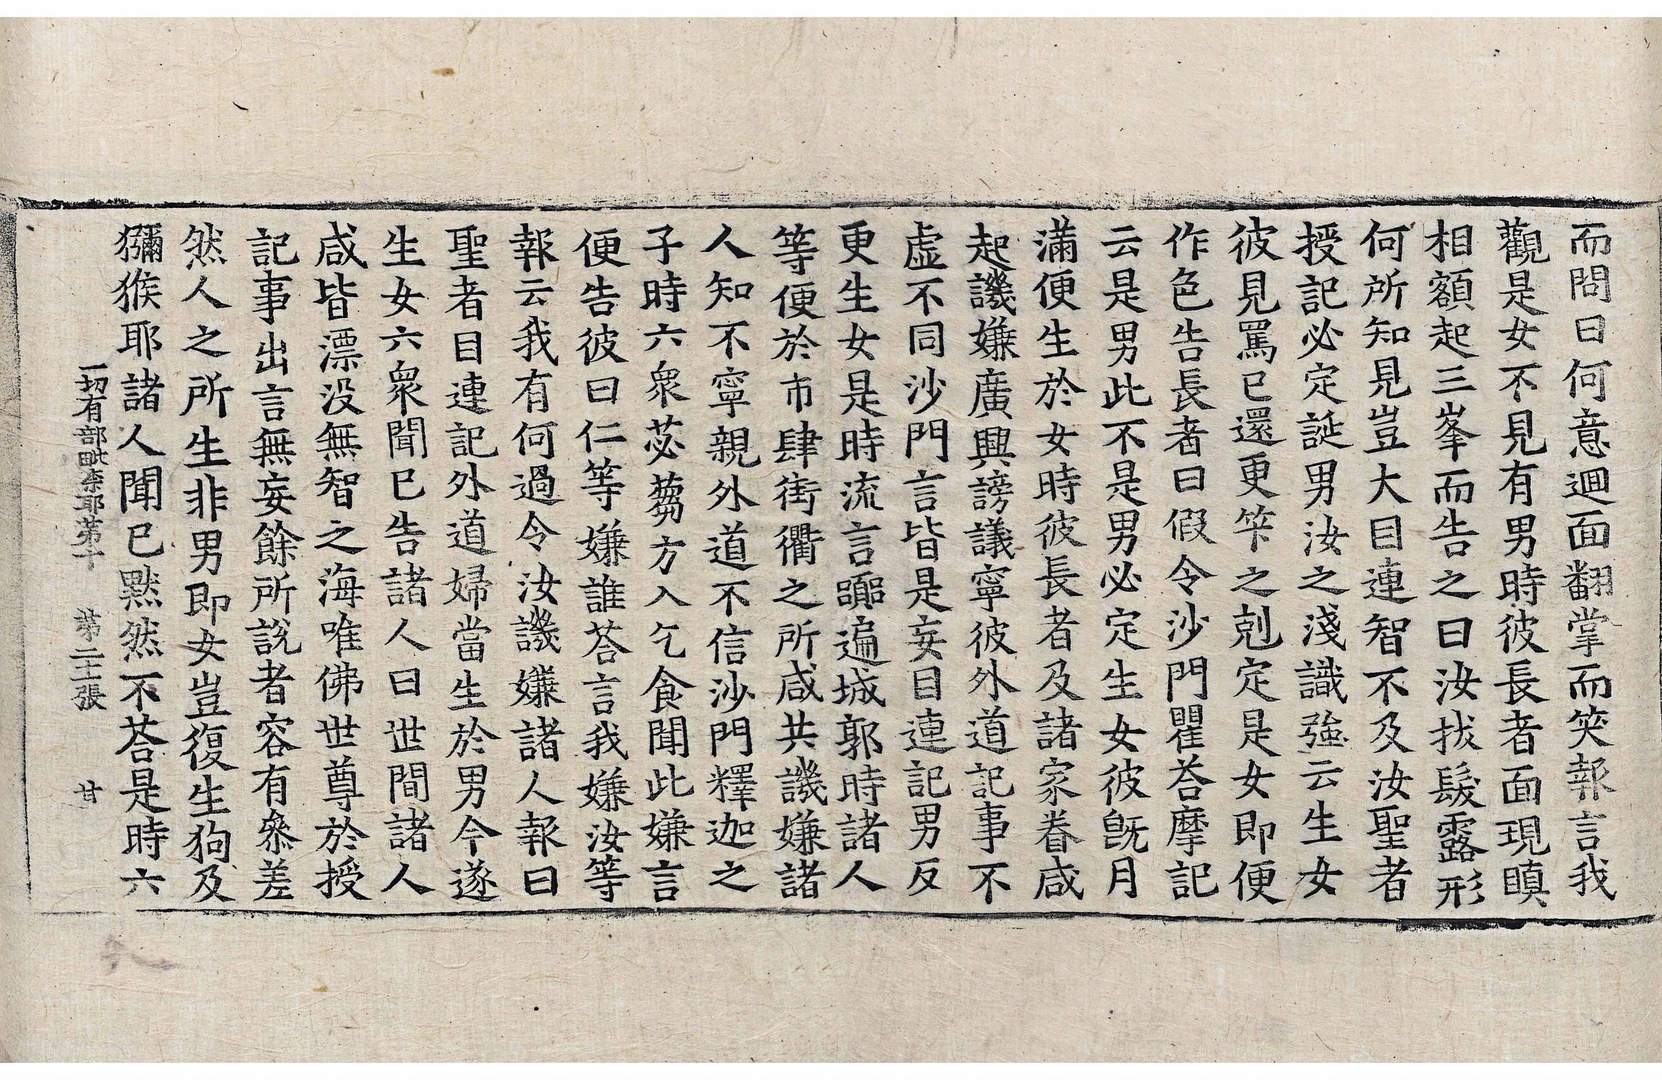 而問曰何意迴面翻掌而笑報言我
觀是女不見有男時彼長者面現瞋
相額起三峯而告之曰汝拔髮露形
何所知見豈大目連智不及汝聖者
授記必定誕男汝之淺識強云生女
彼見罵已還更笇之剋定是女即便
作色告長者曰假令沙門瞿荅摩記
云是男此不是男必定生女彼旣月
滿便生於女時彼長者及諸家眷咸
起譏嫌廣興謗議寧彼外道記事不
虛不同沙門言皆是妄目連記男反
更生女是時流言遍城郭時諸人
等便於市肆街衢之所咸共譏嫌諸
人知不寧親外道不信沙門釋迦之
子時六衆苾蒭方入乞食聞此嫌言
便告彼曰仁等嫌誰荅言我嫌汝等
報云我有何過令汝譏嫌諸人報曰
聖者目連記外道婦當生於男今遂
生女六衆聞已告諸人曰世間諸人
咸皆漂没無智之海唯佛世尊於授
記事出言無妄餘所說者容有叅差
然人之所生非男即女豈復生狗及
獼猴耶諸人聞已黙然不荅是時六
一切有部毗柰耶苐十 苐二十張 甘